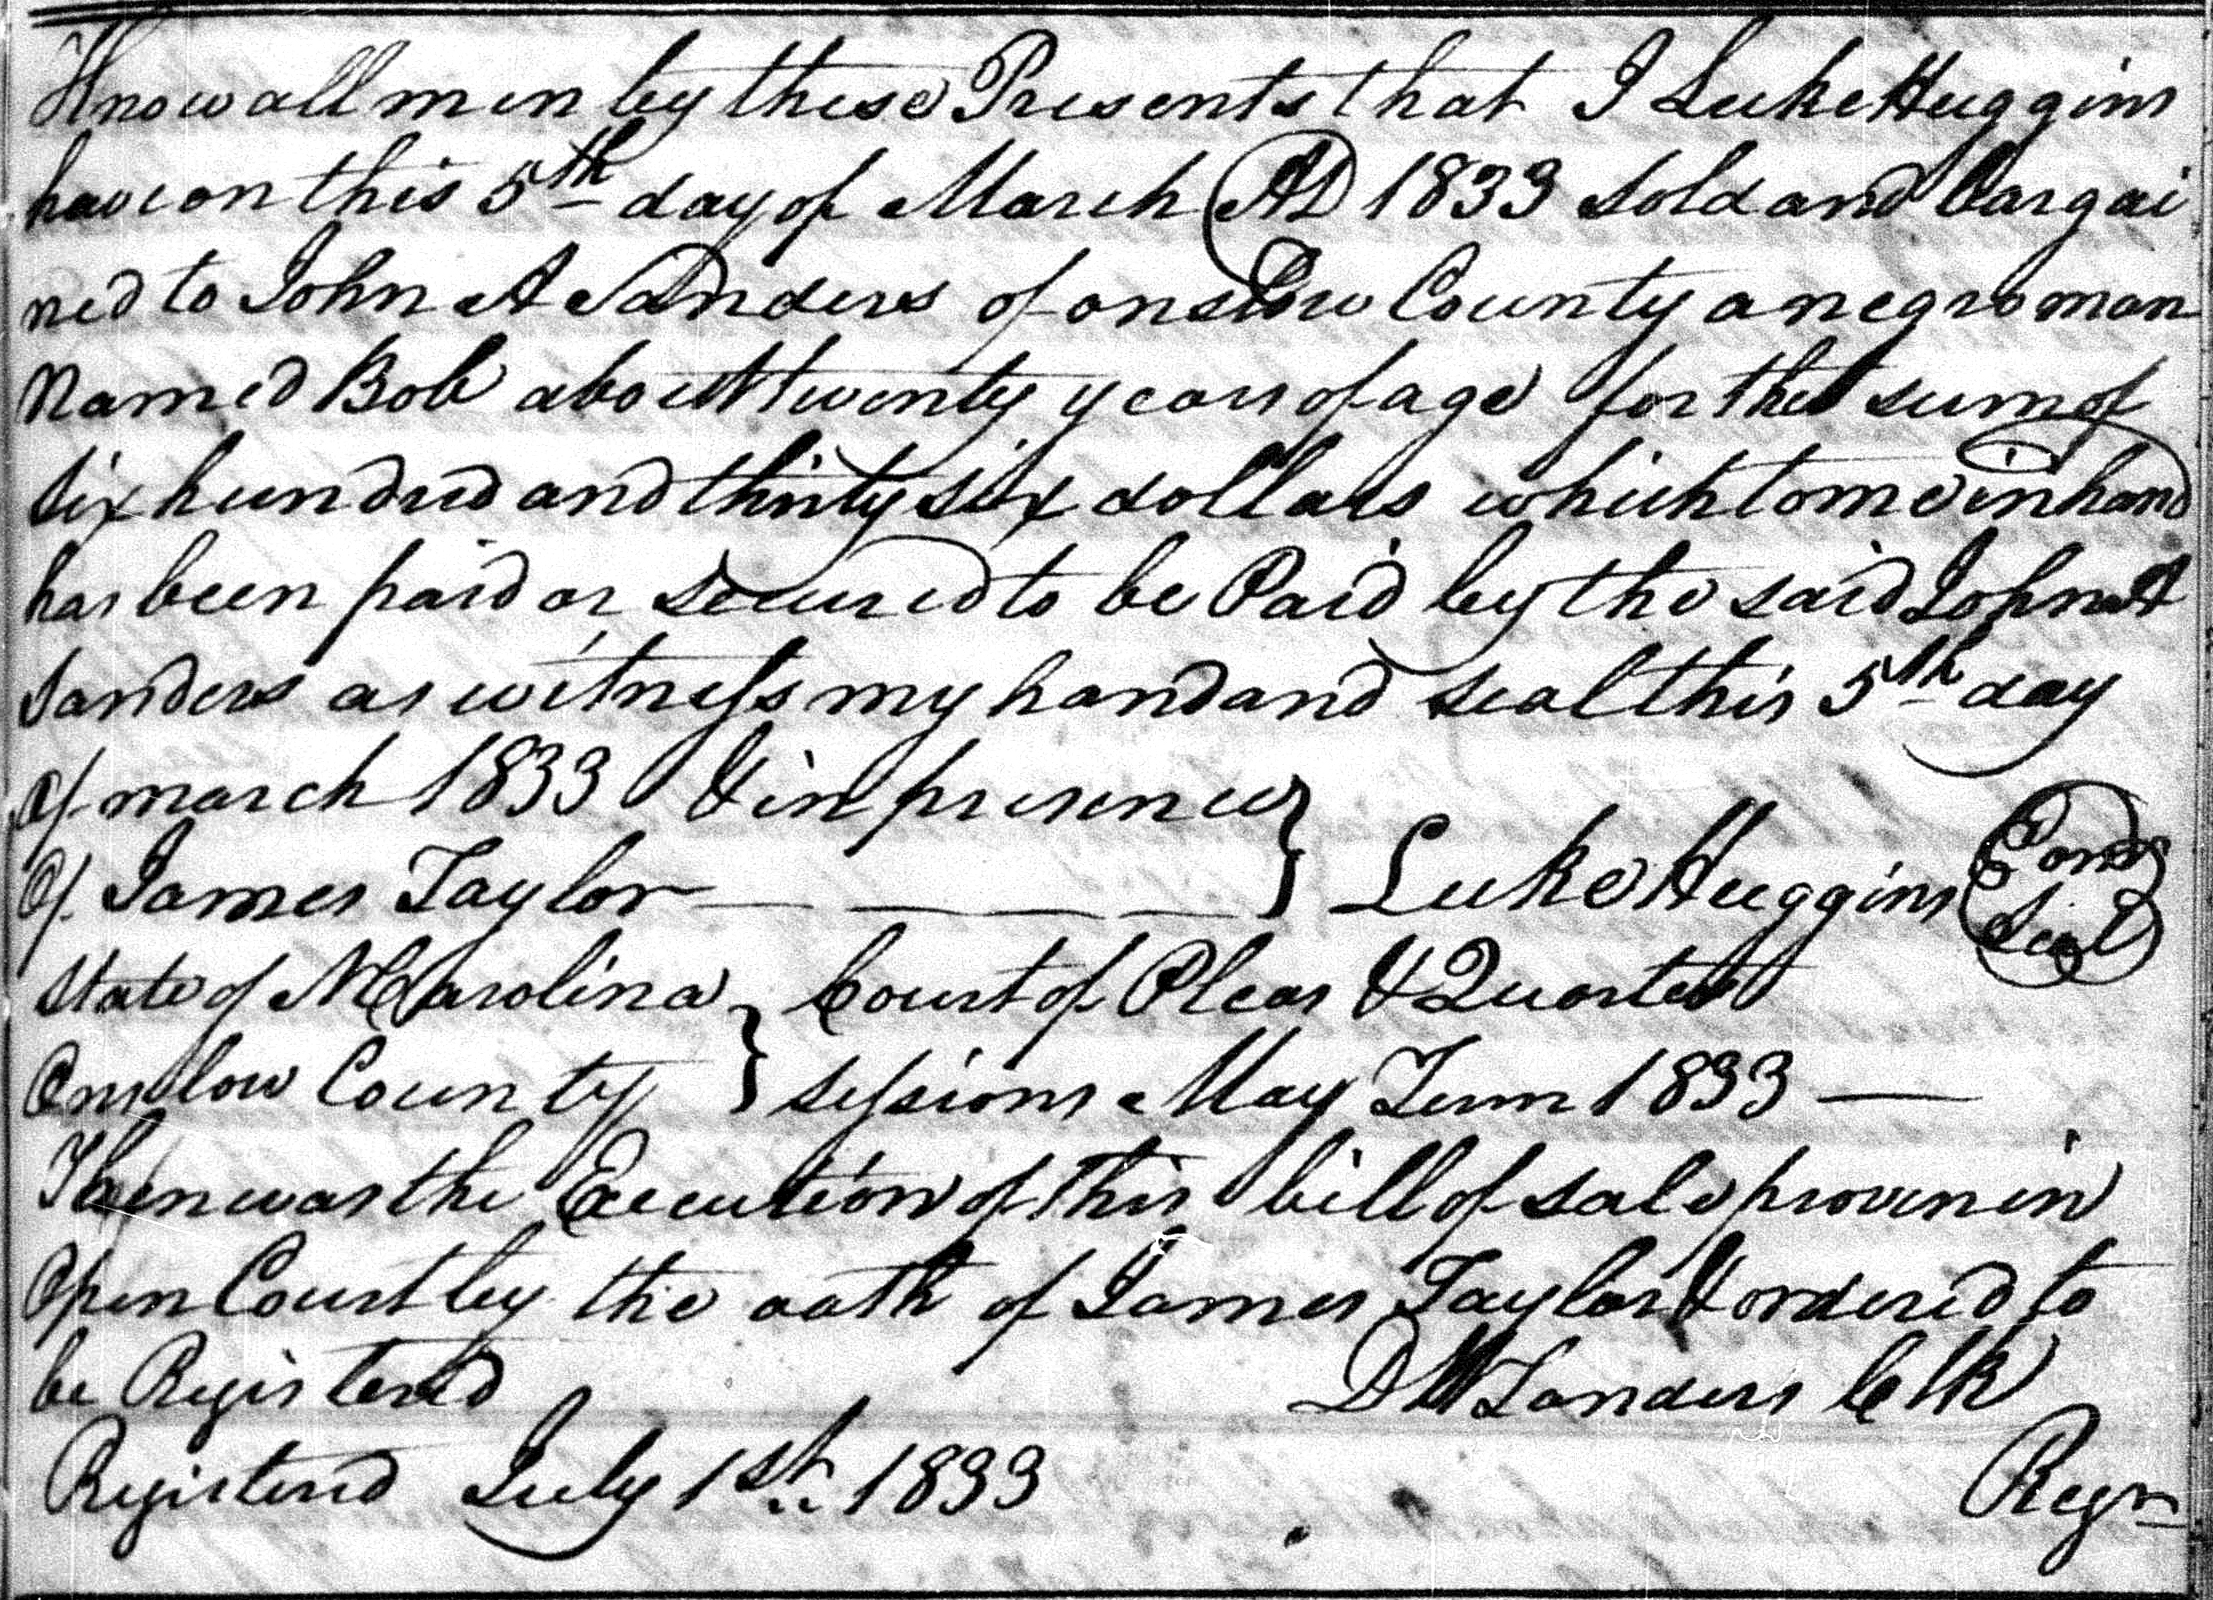 Know all men by these Presents that I Luke Huggins
have on this 5th day of March AD 1833 sold and bargai
ned to John A Sanders of onslow County a negro man
Named Bob about twenty years of age for the sum of
six hundred and thirty six dollars which to me in hand
has been paid or secured to be Paid by the said John A
Sanders as witness my hand and seal this 5th day
of march 1833 & in presence }
of James Taylor — — — — } Luke Huggins
Seal
State of N Carolina } Court of Pleas & Quarter
Onslow County } sessions May Term 1833 —
Then was the Execution of this bill of sale proven in
Open Court by the oath of James Taylor & ordered to
be Registered D W Sanders Clk
Registered July 1st 1833 Regr